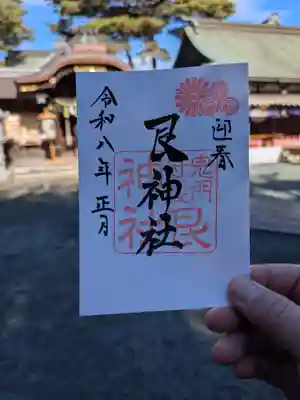 迎春
艮神社
令和八年 正月
鬼門
艮
神社